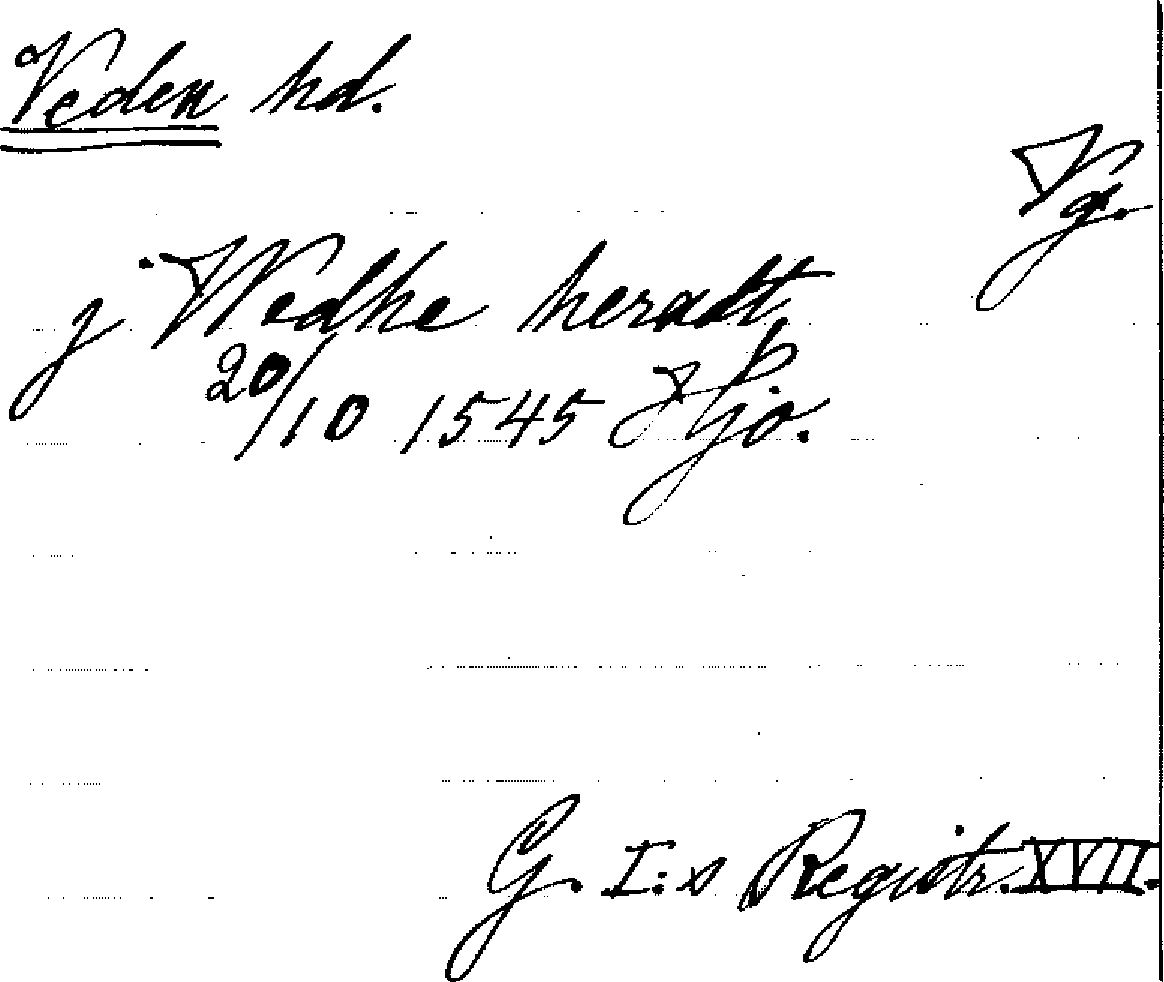 Veden hd.
Vg.
j Wedhe heradt
20/10 1545 Hjo.
G. I:s Registr. XVII.